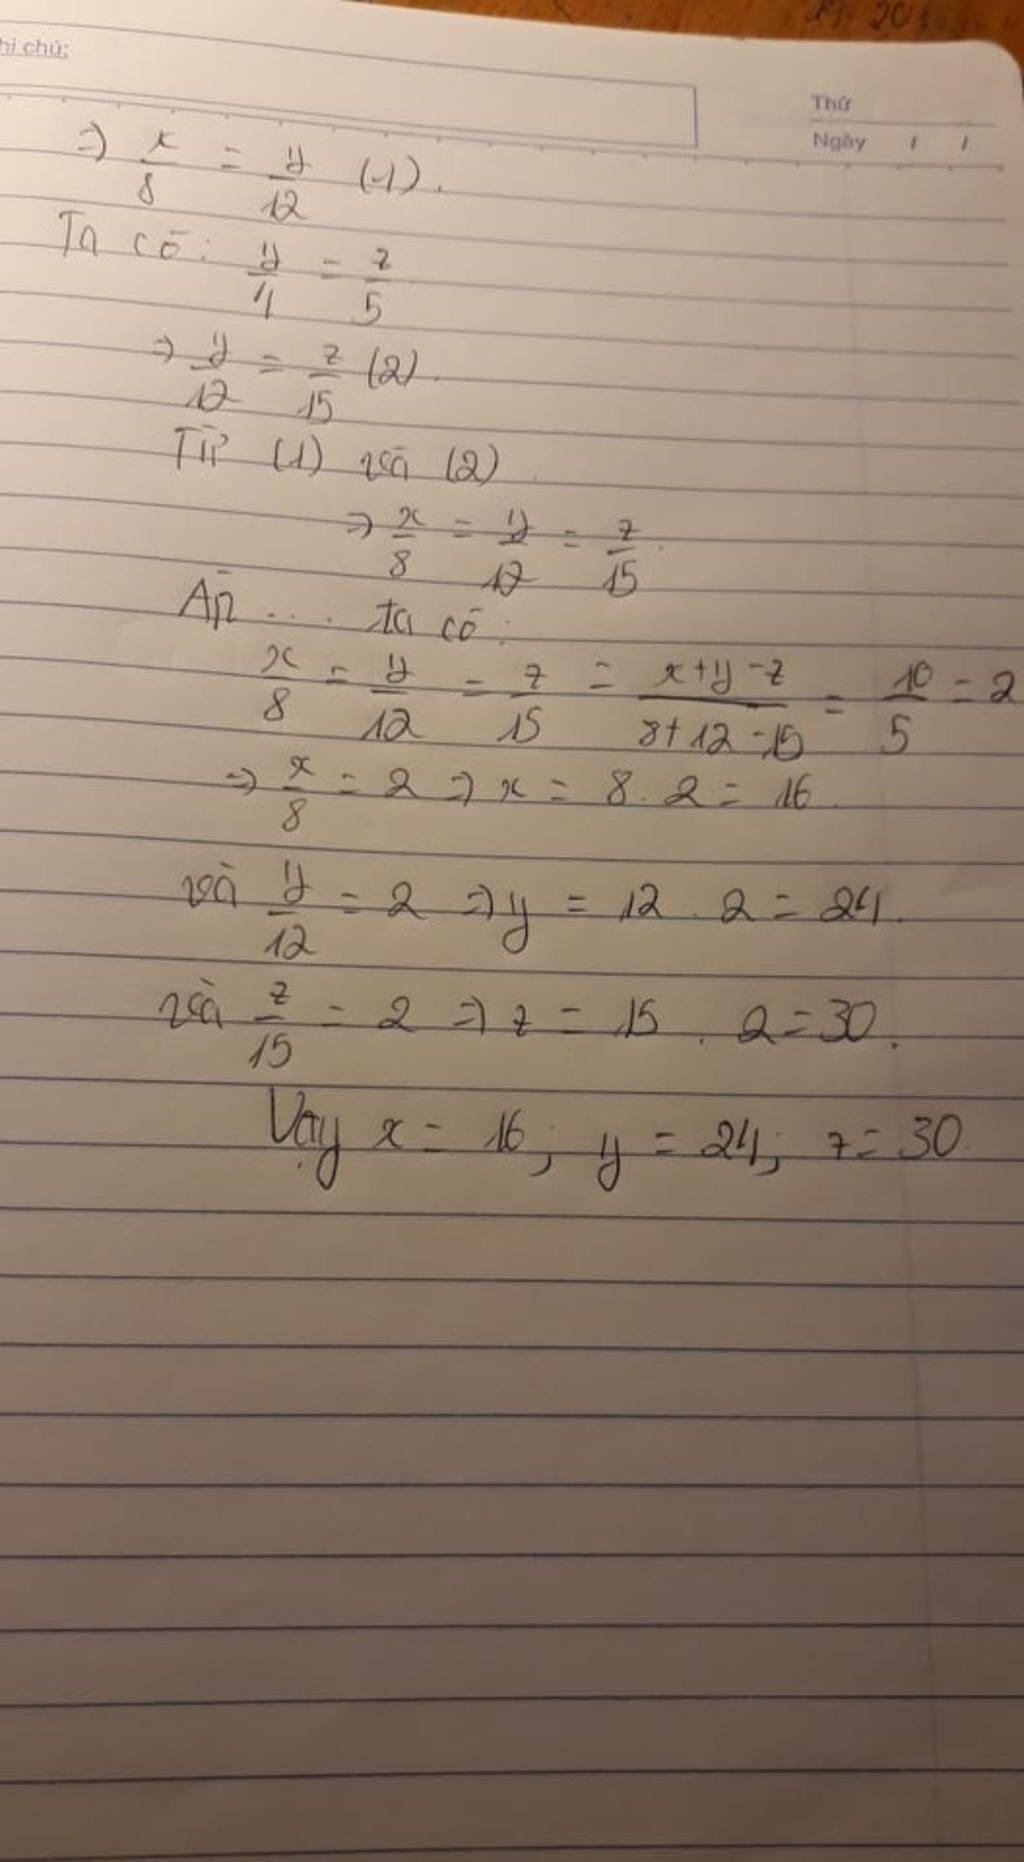 hi chú:
Thứ
Ngày / /
=> x/8 = y/12 (1).
Ta có: y/4 = z/5
=> y/12 = z/15 (2).
Từ (1) và (2)
=> x/8 = y/12 = z/15.
Áp .... ta có:
x/8 = y/12 = z/15 = x+y-z/8+12-15 = 10/5 = 2
=> x/8 = 2 => x = 8.2 = 16.
và y/12 = 2 => y = 12.2 = 24.
và z/15 = 2 => z = 15.2 = 30.
Vậy x = 16; y = 24; z = 30.